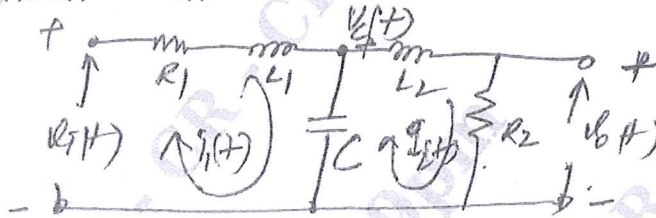 + Vc(t) +
R1 L1 L2
Vi(t) i1(t) C i2(t) R2 Vo(t)
- -